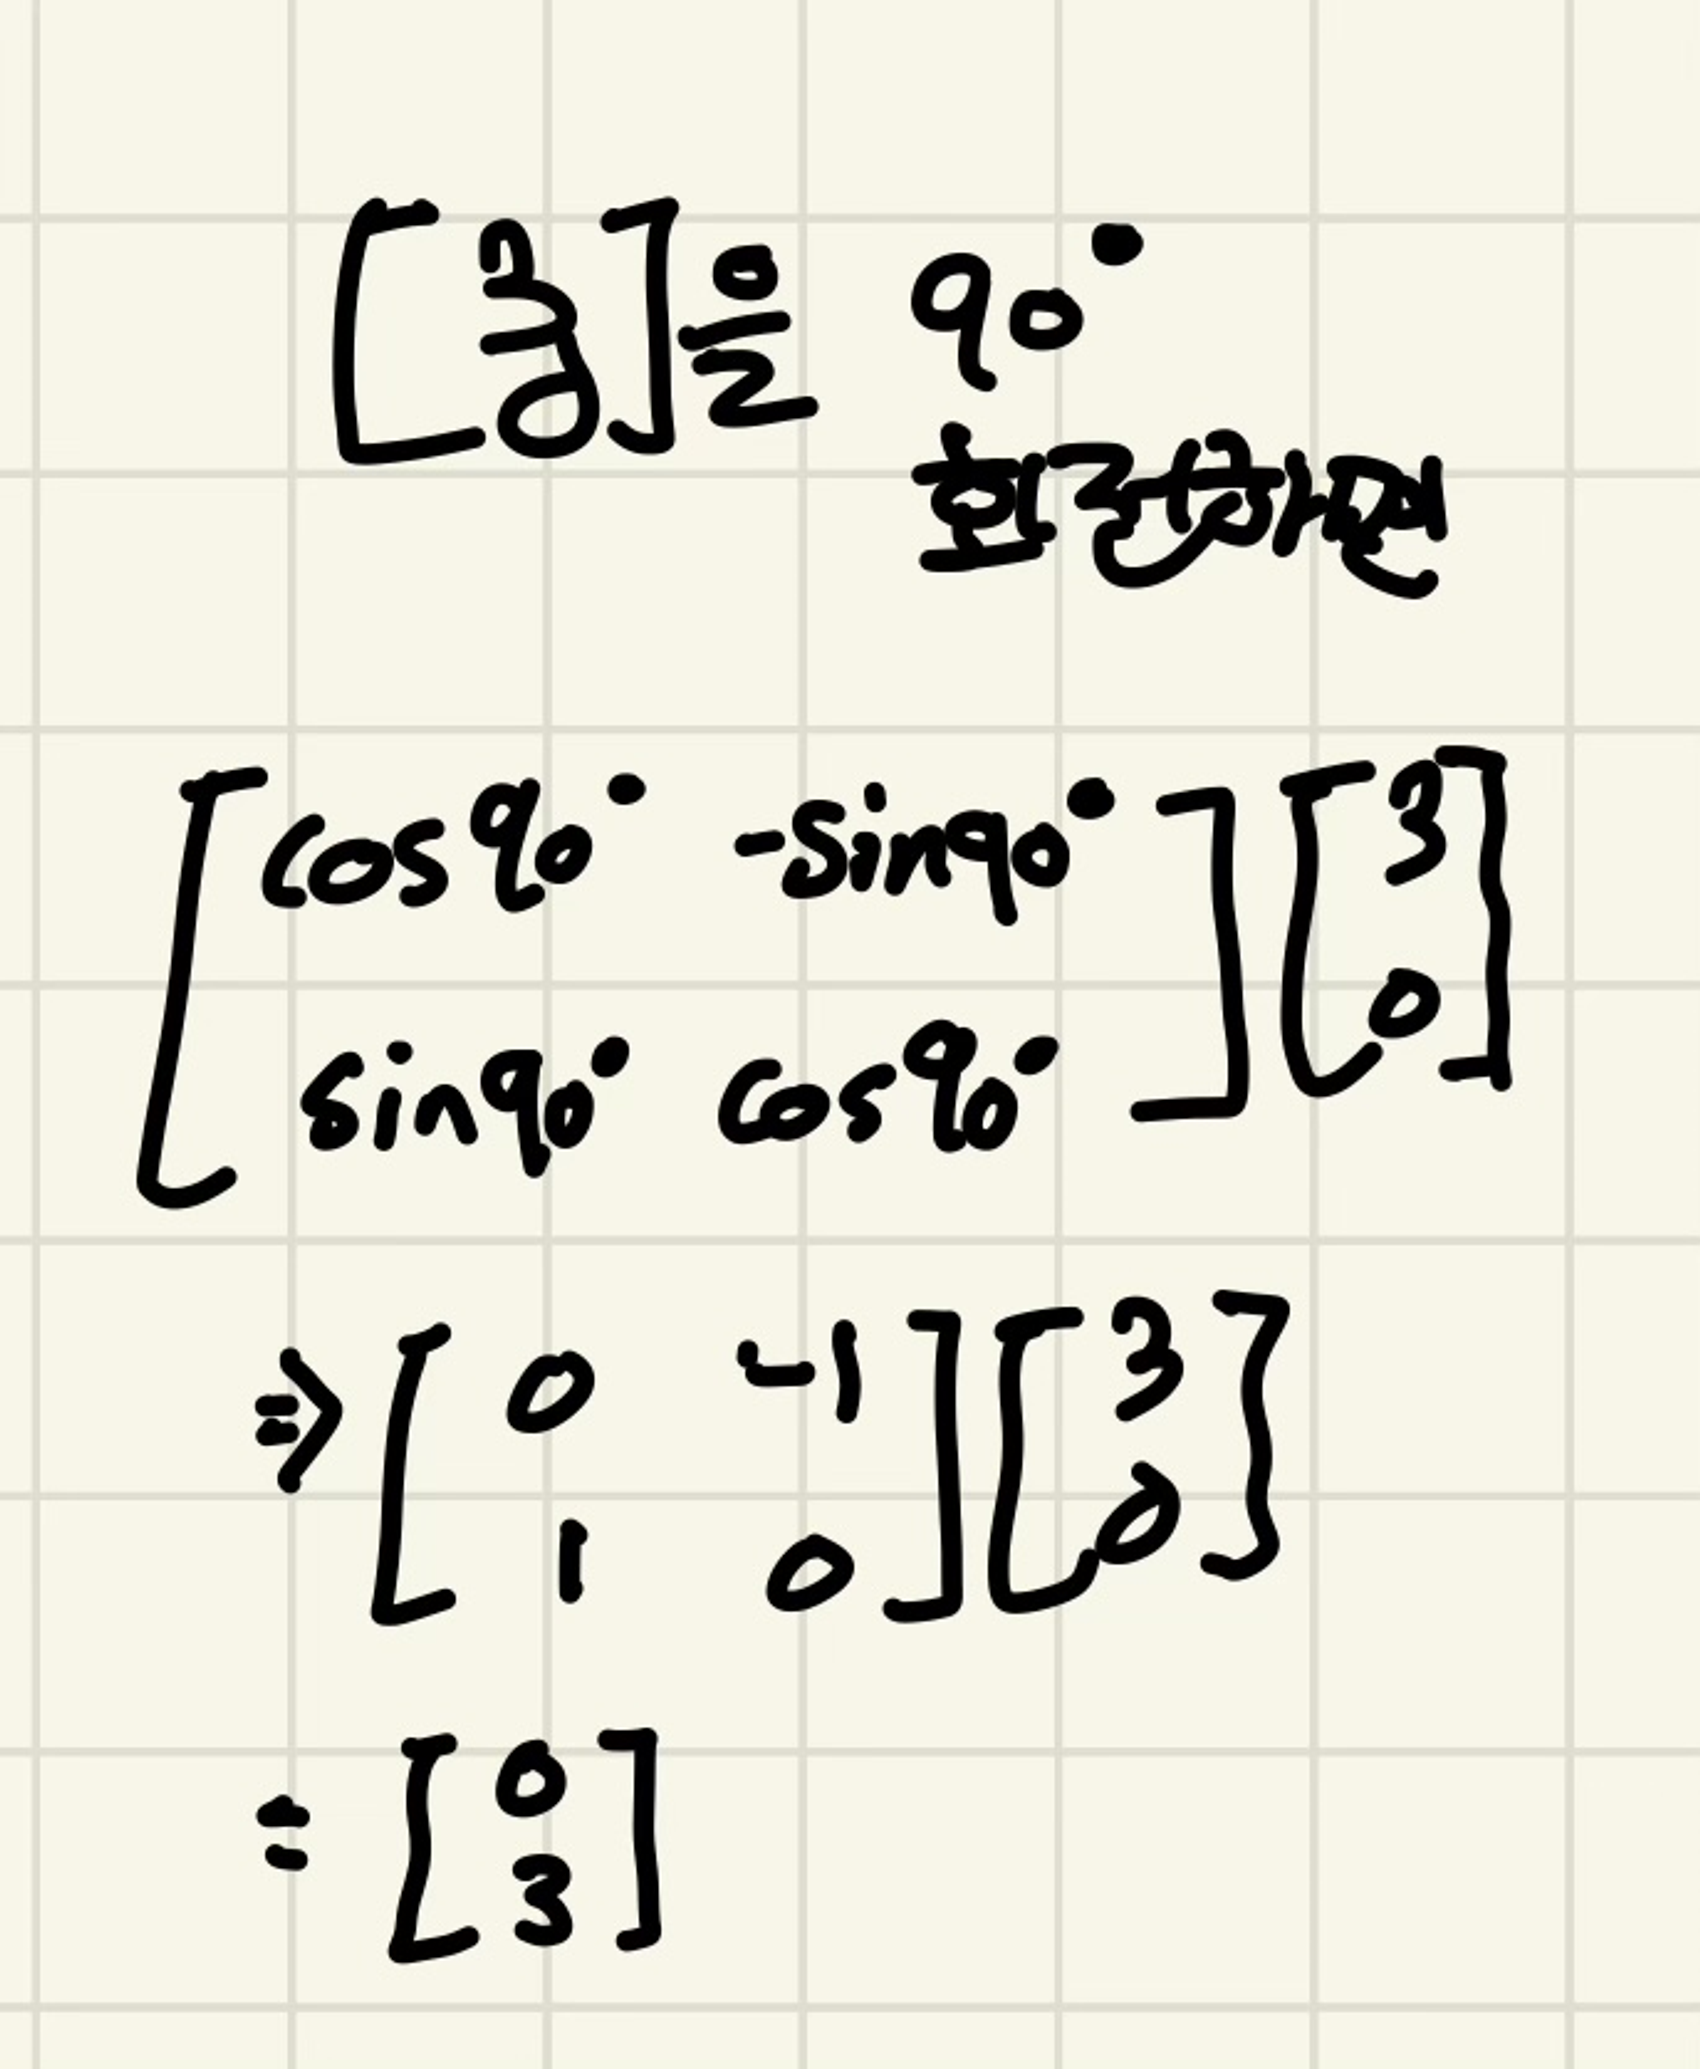 [3 0]을 90°
회전하면
[cos90° -sin90° sin90° cos90°] [3 0]
⇒ [0 -1 1 0] [3 0]
= [0 3]